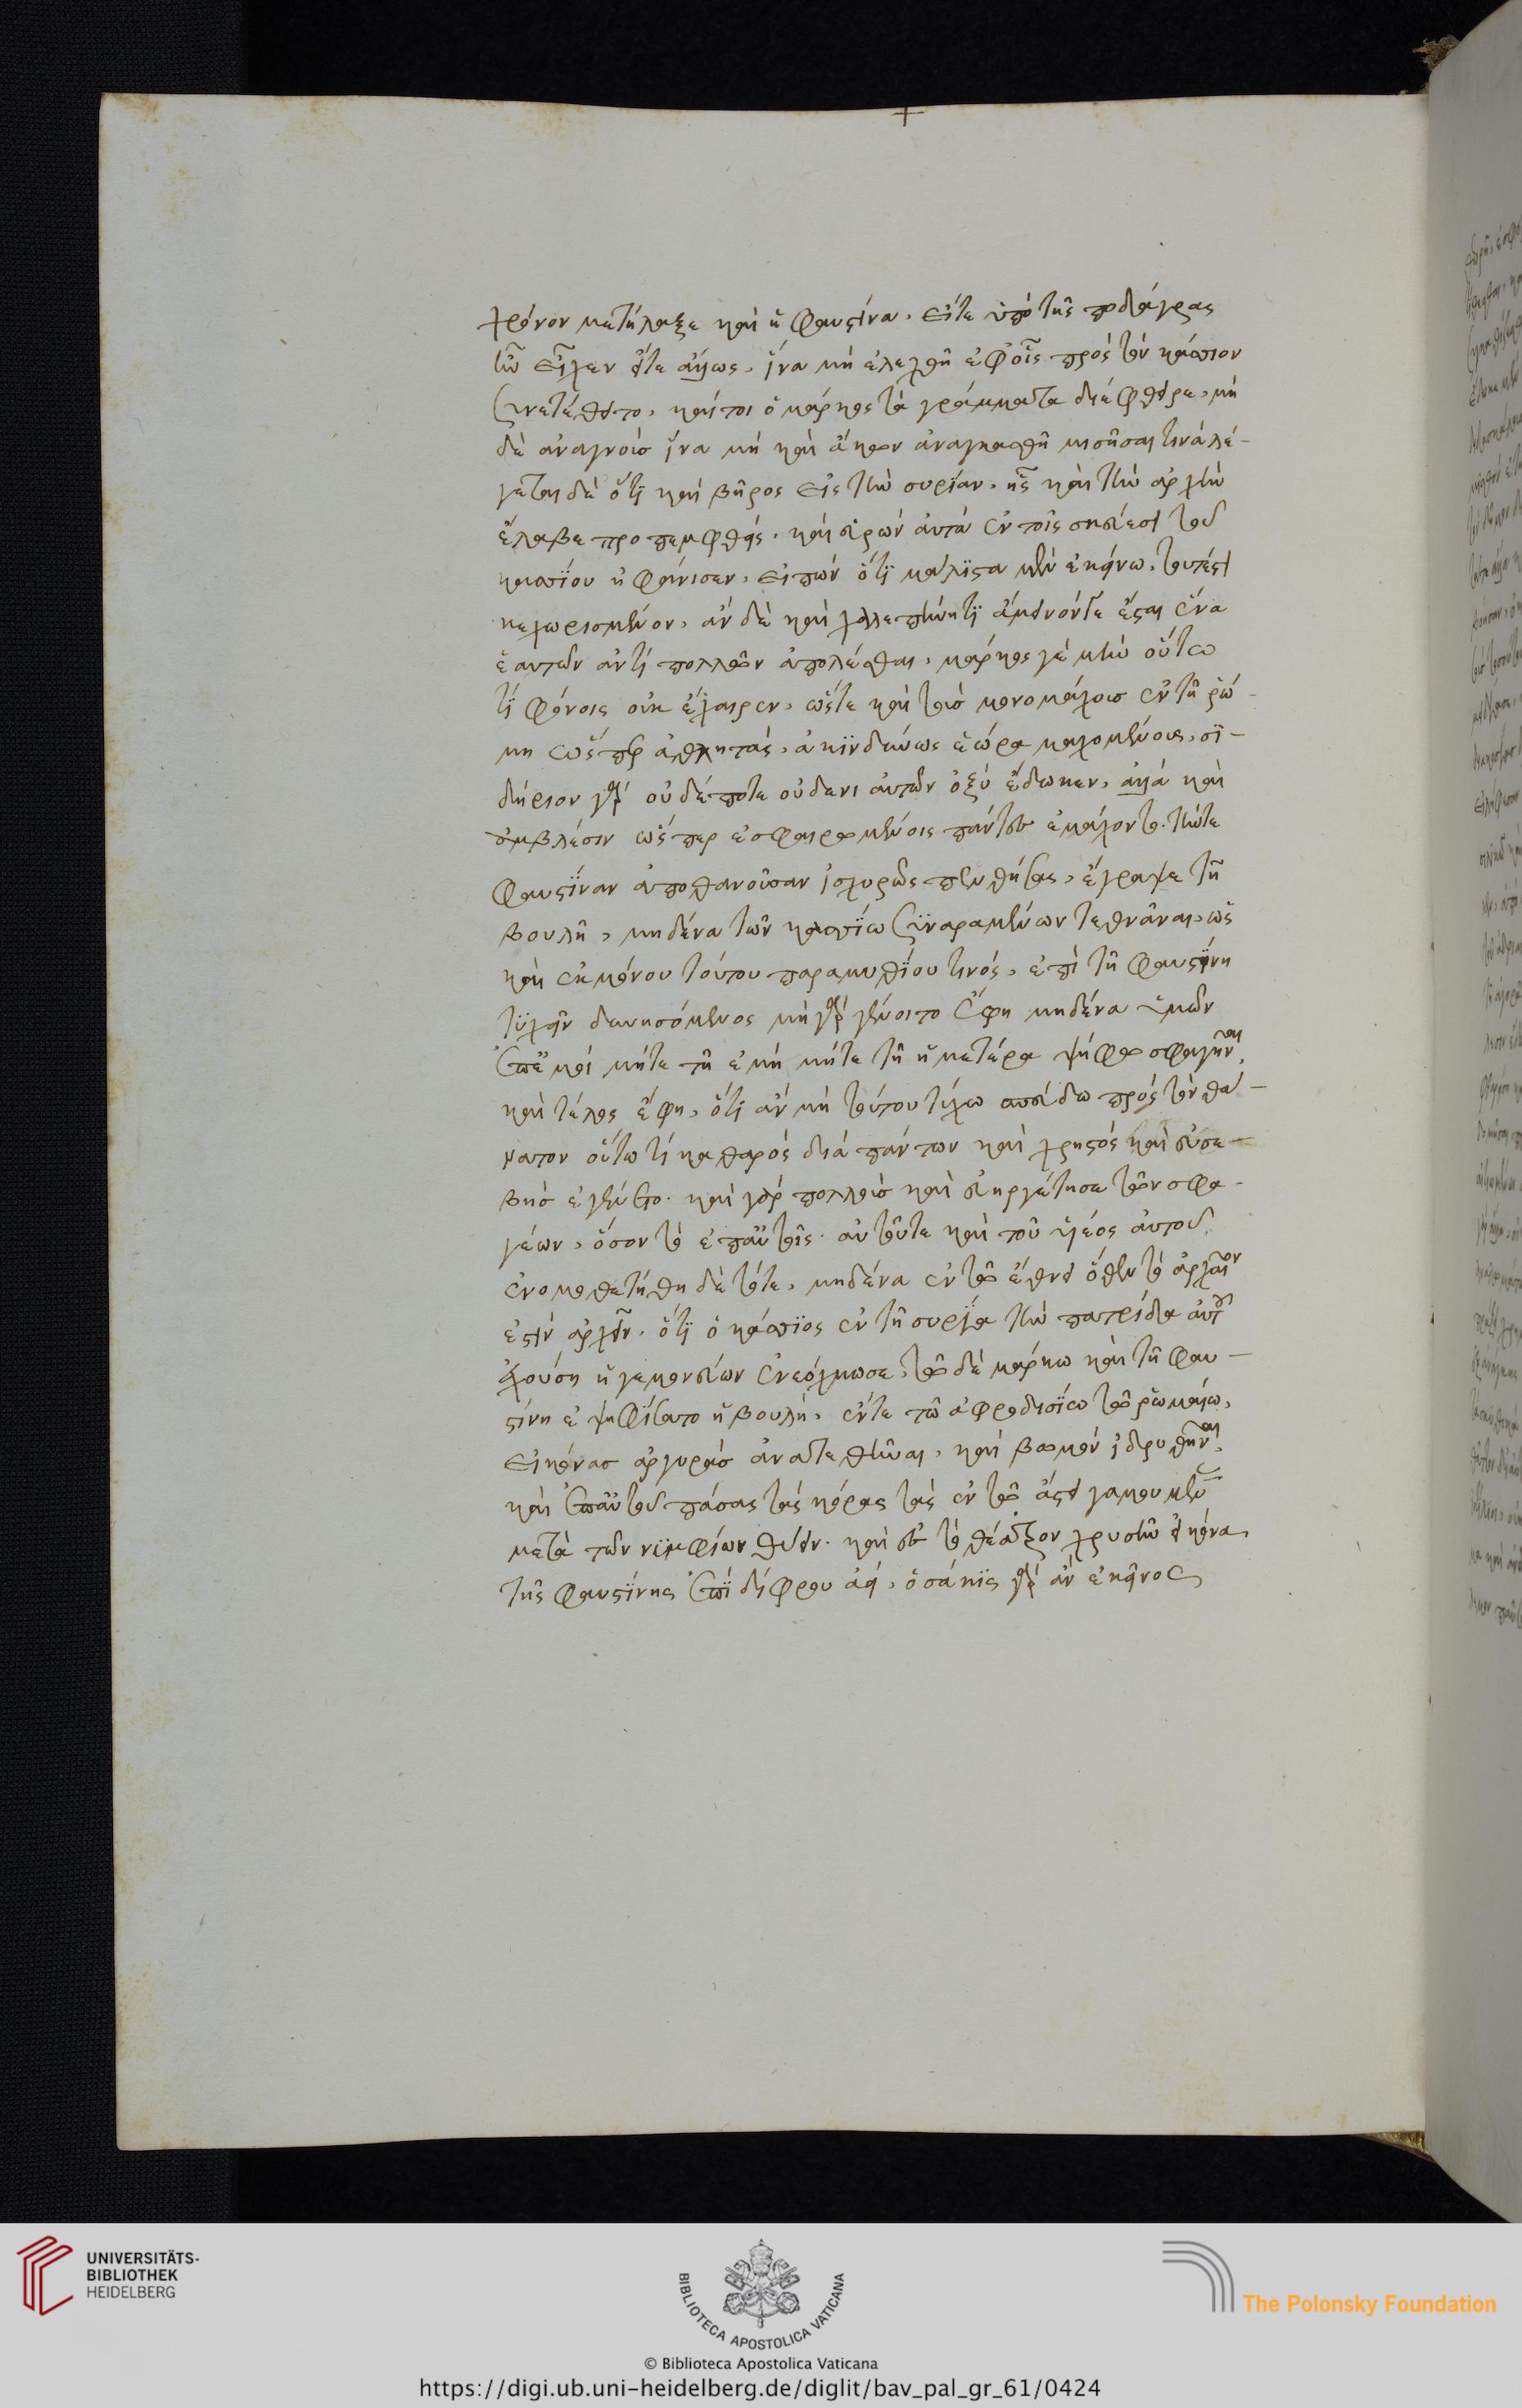 χρόνον μετήλαξε καὶ ἡ Φαυστίνα, εἴτε ὑπὸ τῆς ποδάγρας
ἣν εἶχεν εἴτε ἄλλως, ἵνα μὴ ἐλεγχθῆ ἐφ' οἷς πρὸς τὸν κάσσιον
συνετέθειτο, καίτοι ὁ μάρκος τὰ γράμματα διέφθειρε, μὴ
δὲ ἀναγνοὺς ἵνα μὴ καὶ ἄκων ἀναγκασθῆ μισῆσαί τινα λέ-
γεται δὲ ὅτι καὶ βῆρος εἰς τὴν συρίαν, ἧς καὶ τὴν ἀρχὴν
ἔλαβε προπεμφθείς, καὶ εὑρὼν αὐτὰ ἐν τοῖς σκεύεσι τοῦ
κασσίου ἠφάνισεν, εἰπὼν ὅτι μάλιστα μὲν ἐκείνω, τουτέστι
κεχωρισμένον, ἂν δὲ καὶ χαλεπήνητι ἄμεινόν τε ἔσται ἕνα
ἑαυτὸν ἀντὶ πολλῶν ἀπολέσθαι, μάρκος γὲ μὴν οὕτω
τι φόνοις οὐκ ἔχαιρεν, ὥστε καὶ τοὺς μονομάχους ἐν τῆ ῥώ-
μη ὥσπερ ἀθλητάς, ἀκινδύνως ἑώρα μαχομένους, σι-
δήριον γὰρ οὐδέποτε οὐδενὶ αὐτῶν ὀξὺ ἔδωκεν, ἀλλὰ καὶ
ἀμβλέσιν ὥσπερ ἐσφαιρωμένοις πάντες ἐμάχοντο. τήν τε
Φαυστίναν ἀποθανοῦσαν ἰσχυρῶς πενθήσας, ἔγραψε τῆ
βουλῆ, μηδένα τῶν κασσίω συναραμένων τεθνάναι, ὡς
καὶ ἐκ μόνου τούτου παραμυθίου τινός, ἐπὶ τῆ φαυστίνη
τυχεῖν δυνησόμενος μὴ γὰρ γένοιτο ἔφη μηδένα ὑμῶν
ἐπ' ἐμοὶ μήτε τῆ ἐμῆ μήτε τῆ ἡμετέρα ψήφω σφαγῆναι,
καὶ τέλος ἔφη, ὅτι ἂν μὴ τούτου τύχω σπεύδω πρὸς τὸν θά-
νατον οὕτω τι καθαρὸς διὰ πάντων καὶ χρηστὸς καὶ εὐσε-
βὴς ἐγένετο. καὶ γὰρ πολλοὺς καὶ εὐηργέτησε τῶν σφα-
γέων, ὅσον τὸ ἐπ' αὐτοῖς. αὐτοῦ τε καὶ τοῦ υἱέος αὐτοῦ
ἐνομοθετήθη δὲ τότε, μηδένα ἐν τῶ ἔθνει ὅθεν τὸ ἀρχαῖον
ἐστὶν ἄρχειν. ὅτι ὁ κάσσιος ἐν τῆ συρία τὴν πατρίδα αὐτοῦ
ἐχούση ἡγεμονεύων ἐνεόχμωσε, τῶ δὲ μάρκω καὶ τῆ φαυ-
στίνη ἐψηφίσατο ἡ βουλή, ἔν τε τῶ ἀφροδισίω τῶ ῥωμαίω,
εἰκόνας ἀργυρᾶς ἀνατεθῆναι, καὶ βωμὸν ἱδρυθῆναι,
καὶ ἐπ' αὐτοῦ πάσας τὰς κόρας τὰς ἐν τῶ ἄστει γαμουμένας
μετὰ τῶν νυμφίων θύειν. καὶ ἐς τὸ θέατρον χρυσῆν εἰκόνα,
τῆς φαυστίνης ἐπὶ δίφρου ἀεί, ὁσάκις γὰρ ἂν ἐκεῖνος
UNIVERSITÄTS-
BIBLIOTHEK
HEIDELBERG
BIBLIOTECA APOSTOLICA VATICANA
The Polonsky Foundation
© Biblioteca Apostolica Vaticana
https://digi.ub.uni-heidelberg.de/diglit/bav_pal_gr_61/0424